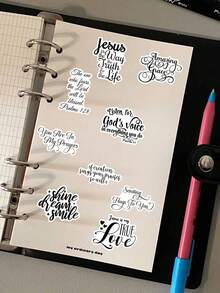 Jesus
the Way
the Truth
the Life
Amazing
Grace
The one
who fears
the Lord
will be
blessed
Psalms 128
Listen for
God's voice
in everything you
do
You Are In
My Prayers
if creation
sings your praises
so will i
shine
dream
smile
Sending
Hugs To You
Jesus is my
TRUE
Love